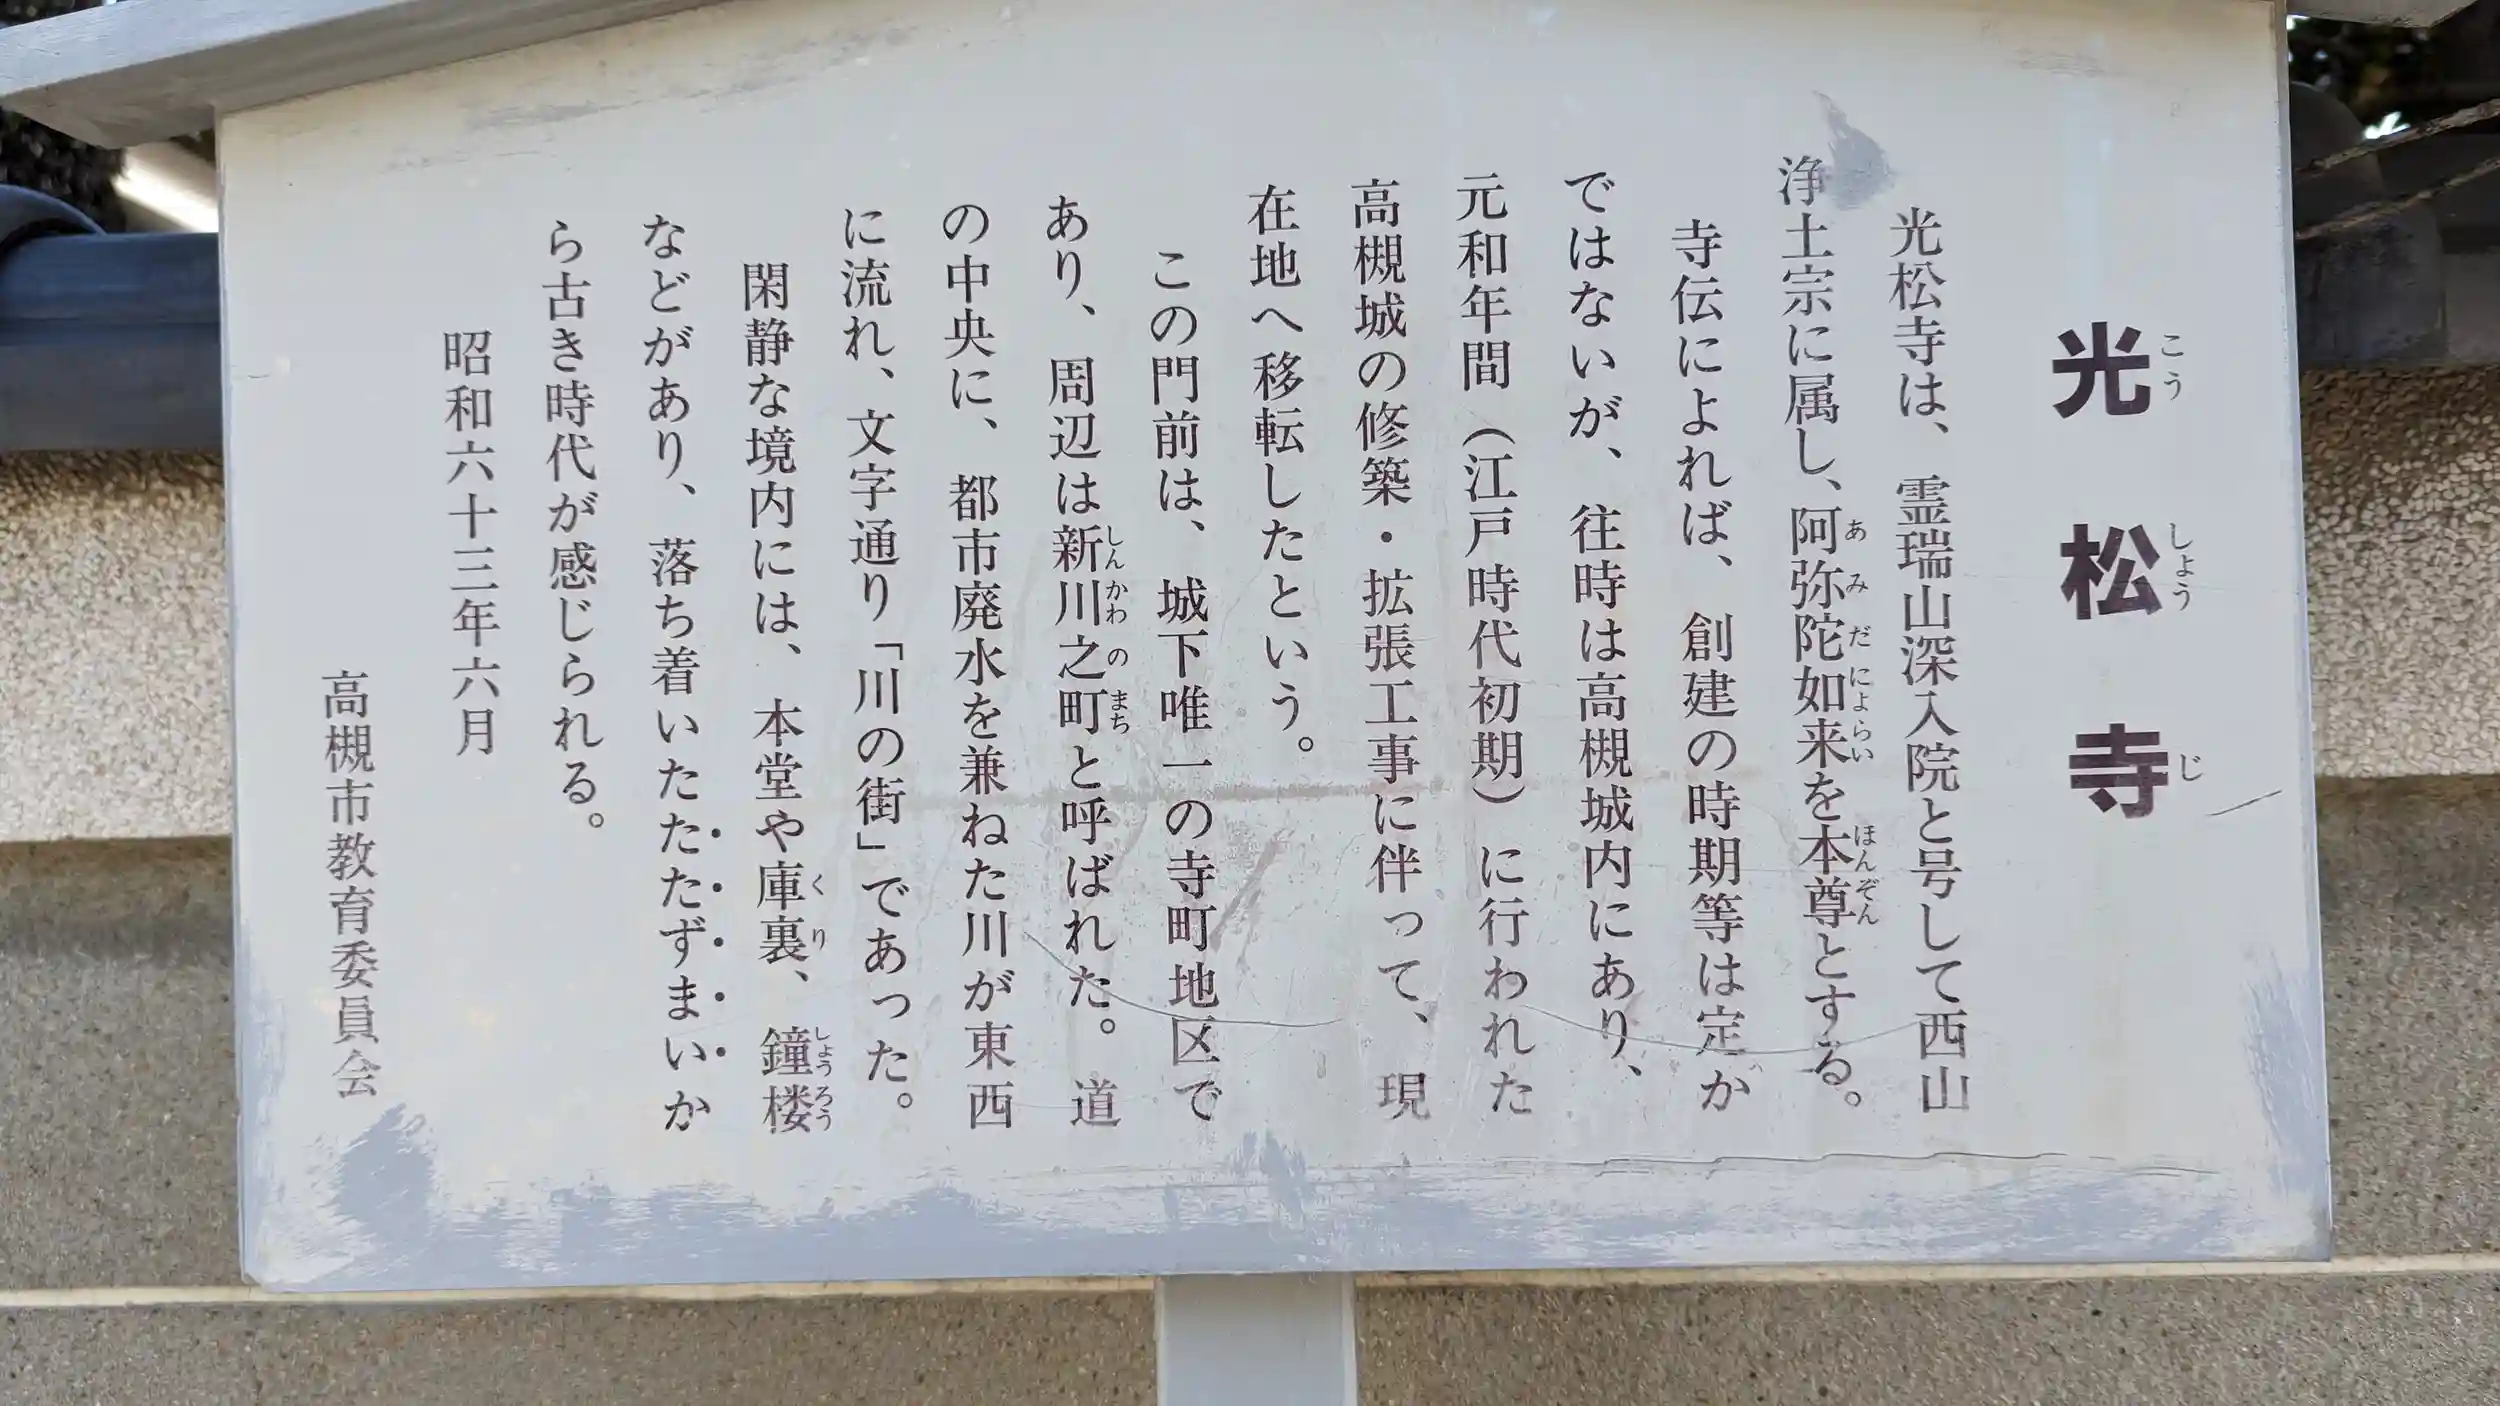 光松寺
こうしょうじ
光松寺は、霊瑞山深入院と号して西山
浄土宗に属し、阿弥陀如来を本尊とする。
あみだにょらい
ほんぞん
寺伝によれば、創建の時期等は定か
ではないが、往時は高槻城内にあり、
元和年間(江戸時代初期)に行われた
高槻城の修築・拡張工事に伴って、現
在地へ移転したという。
この門前は、城下唯一の寺町地区で
あり、周辺は新川之町と呼ばれた。道
しんかわのまち
の中央に、都市廃水を兼ねた川が東西
に流れ、文字通り「川の街」であった。
閑静な境内には、本堂や庫裏、鐘楼
くり
しょうろう
などがあり、落ち着いたたたずまいか
ら古き時代が感じられる。
昭和六十三年六月
高槻市教育委員会